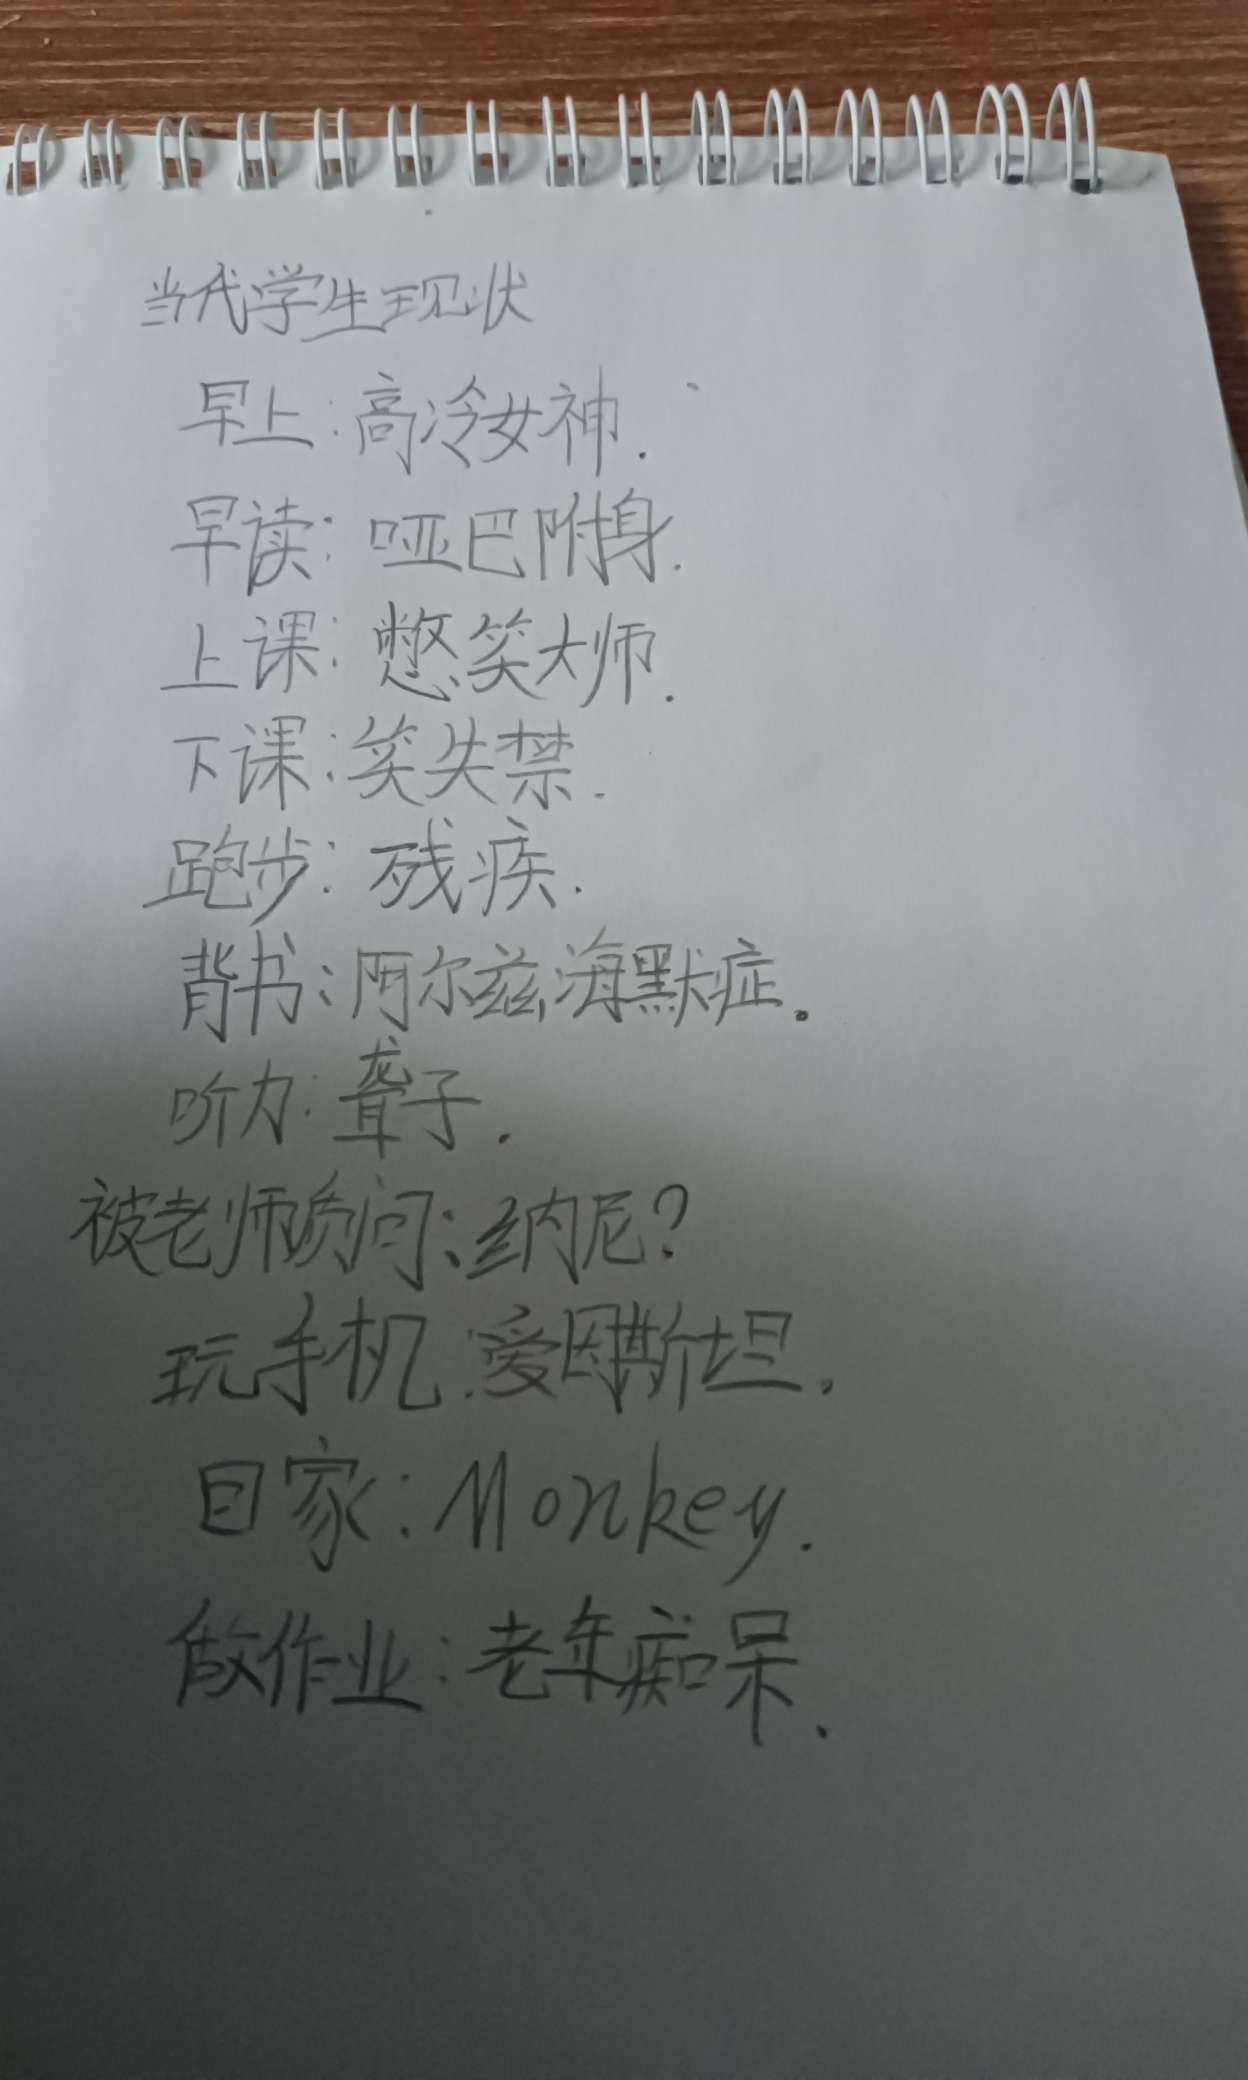 当代学生现状
早上:高冷女神.
早读:哑巴附身.
上课:憋笑大师.
下课:笑失禁.
跑步:残疾.
背书:阿尔兹海默症。
听力:聋子.
被老师质问:纳尼?
玩手机:爱因斯坦.
回家:Monkey.
做作业:老年痴呆.